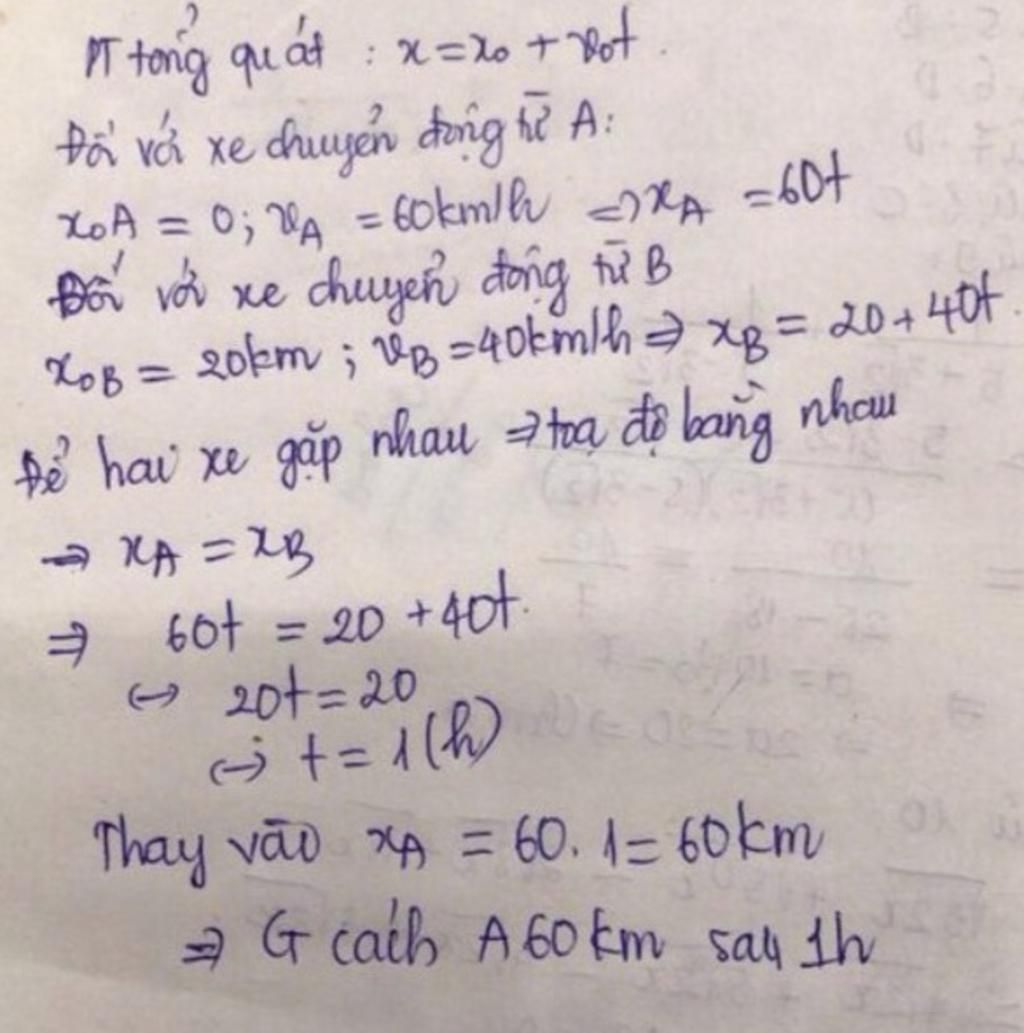 PT tổng quát : x = x₀ + v₀t.
Đối với xe chuyển động từ A:
x₀A = 0; vA = 60km/h => xA = 60t
Đối với xe chuyển động từ B
x₀B = 20km ; vB = 40km/h => xB = 20 + 40t.
Để hai xe gặp nhau => toạ độ bằng nhau
=> xA = xB
=> 60t = 20 + 40t.
<-> 20t = 20
<-> t = 1(h)
Thay vào xA = 60. 1 = 60km
=> G cách A 60km sau 1h